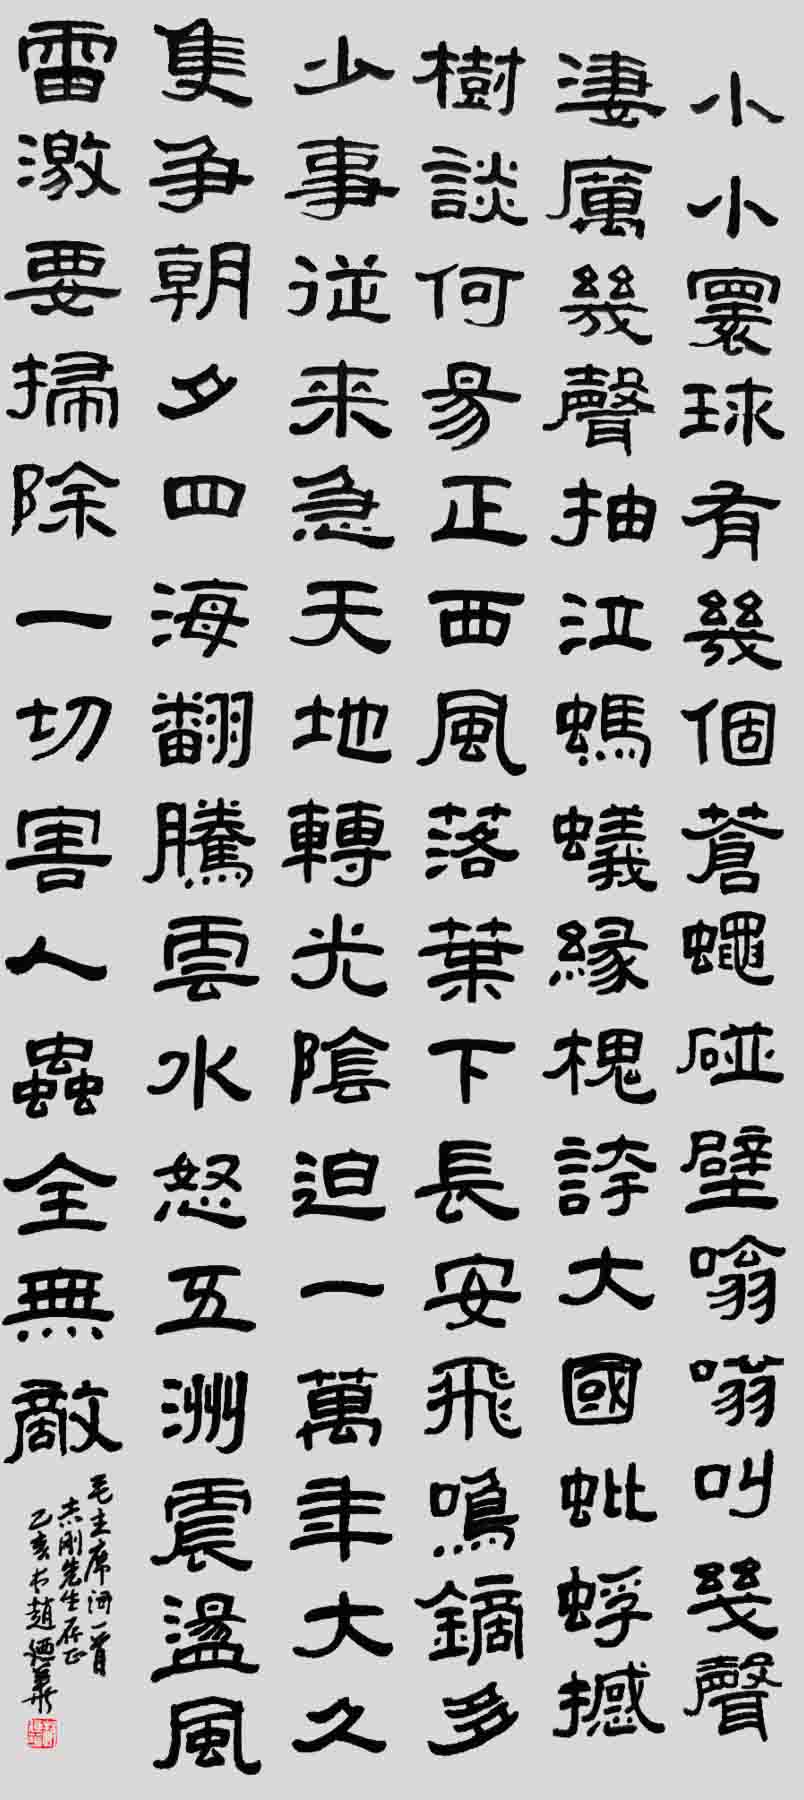 小小寰球有幾個蒼蠅碰壁嗡嗡叫幾聲
淒厲幾聲抽泣螞蟻緣槐誇大國蚍蜉撼
樹談何易正西風落葉下長安飛鳴鏑多
少事従来急天地轉光陰迫一萬年大久
隻争朝夕四海翻騰雲水怒五洲震盪風
雷激要掃除一切害人蟲全無敵
毛主席词一首
志刚先生存正
乙亥书趙